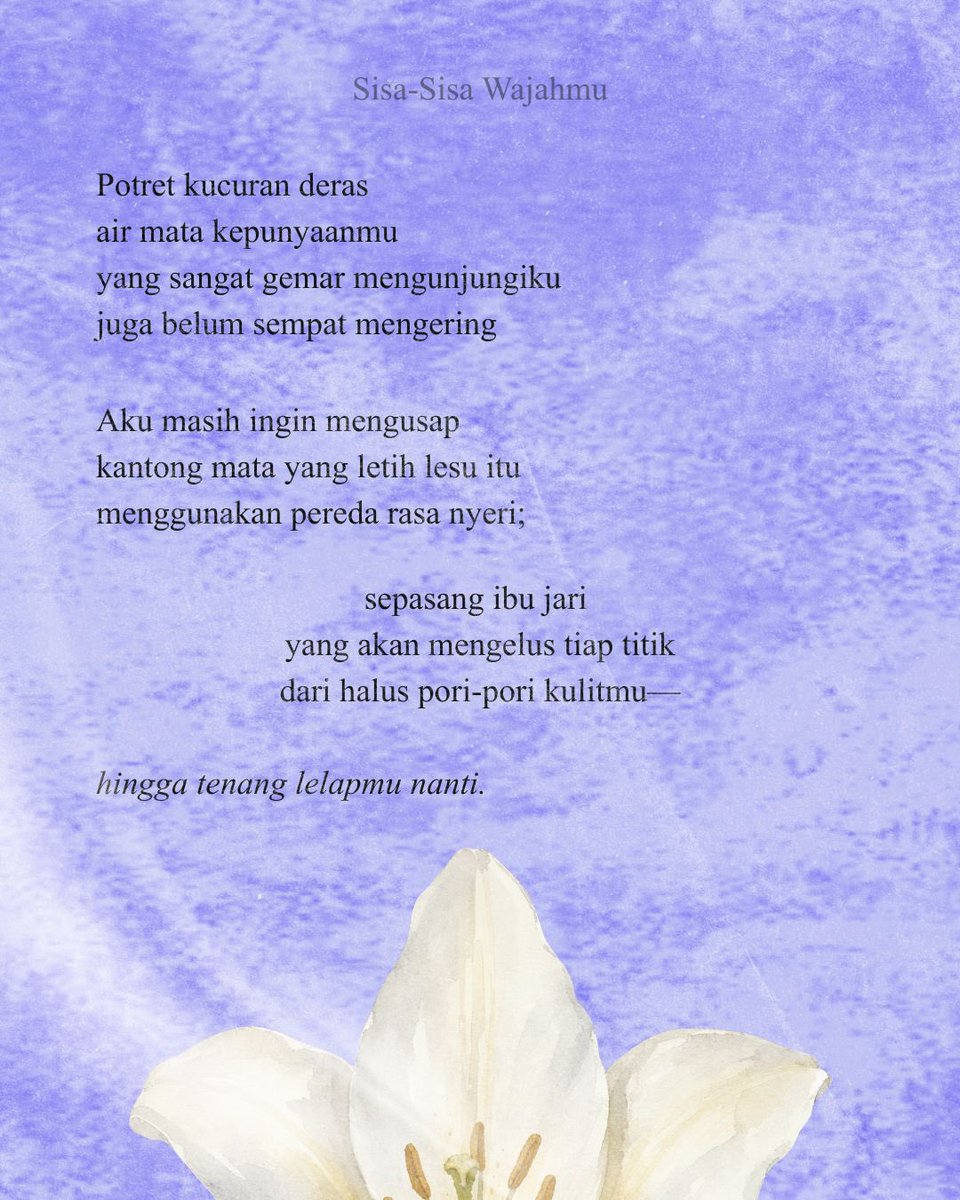 Sisa-Sisa Wajahmu
Potret kucuran deras
air mata kepunyaanmu
yang sangat gemar mengunjungiku
juga belum sempat mengering
Aku masih ingin mengusap
kantong mata yang letih lesu itu
menggunakan pereda rasa nyeri;
sepasang ibu jari
yang akan mengelus tiap titik
dari halus pori-pori kulitmu—
hingga tenang lelapmu nanti.